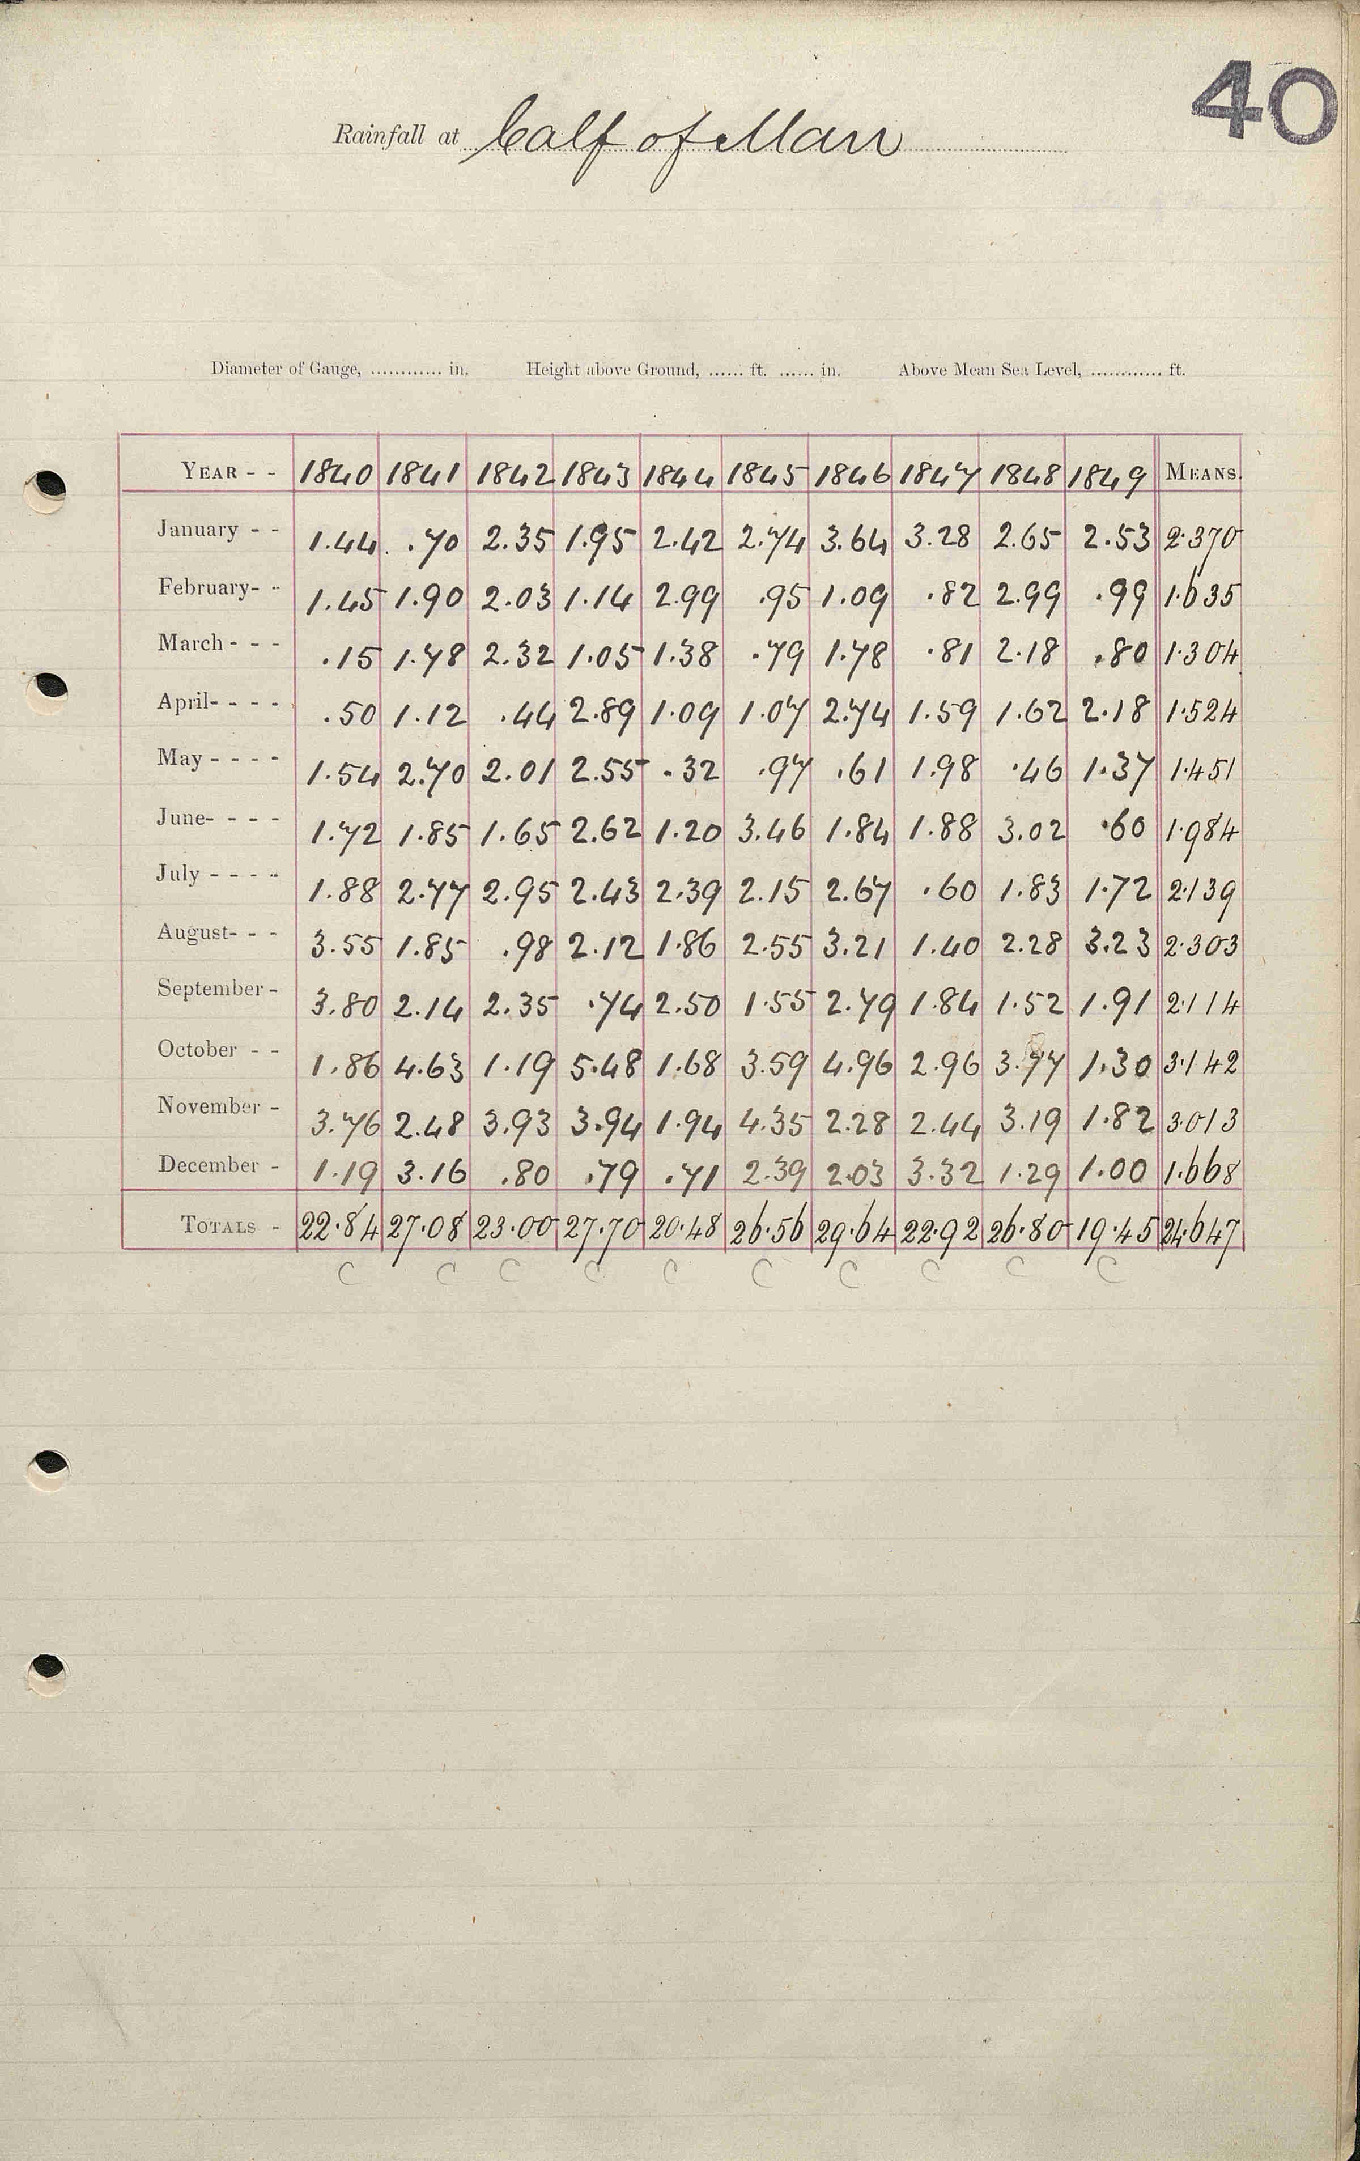 40
Rainfall at Calf of Man
Diameter of Gauge, ............ in. Height above Ground, ...... ft. ...... in. Above Mean Sea Level, ............ ft.
YEAR - - 1840 1841 1842 1843 1844 1845 1846 1847 1848 1849 MEANS.
January - - 1.44 .70 2.35 1.95 2.42 2.74 3.64 3.28 2.65 2.53 2.370
February- - 1.45 1.90 2.03 1.14 2.99 .95 1.09 .82 2.99 .99 1.635
March - - - .15 1.78 2.32 1.05 1.38 .79 1.78 .81 2.18 .80 1.304
April- - - - .50 1.12 .44 2.89 1.09 1.07 2.74 1.59 1.62 2.18 1.524
May - - - - 1.54 2.70 2.01 2.55 .32 .97 .61 1.98 .46 1.37 1.451
June- - - - 1.72 1.85 1.65 2.62 1.20 3.46 1.84 1.88 3.02 .60 1.984
July - - - - 1.88 2.77 2.95 2.43 2.39 2.15 2.67 .60 1.83 1.72 2.139
August- - - 3.55 1.85 .98 2.12 1.86 2.55 3.21 1.40 2.28 3.23 2.303
September - 3.80 2.14 2.35 .74 2.50 1.55 2.79 1.84 1.52 1.91 2.114
October - - 1.86 4.63 1.19 5.48 1.68 3.59 4.96 2.96 3.77 1.30 3.142
November - 3.76 2.48 3.93 3.94 1.94 4.35 2.28 2.44 3.19 1.82 3.013
December - 1.19 3.16 .80 .79 .71 2.39 2.03 3.32 1.29 1.00 1.668
TOTALS - 22.84 27.08 23.00 27.70 20.48 26.56 29.64 22.92 26.80 19.45 24.647
C C C C C C C C C C